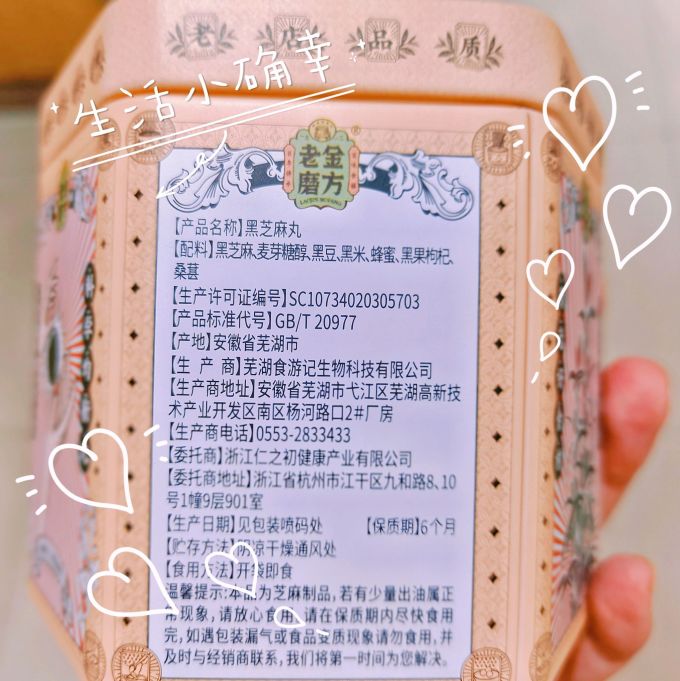 老店品质
生活小确幸
老金
磨方
【产品名称】黑芝麻丸
【配料】黑芝麻、麦芽糖醇、黑豆、黑米、蜂蜜、黑果枸杞、
桑葚
【生产许可证编号】SC10734020305703
【产品标准代号】GB/T 20977
【产地】安徽省芜湖市
【生 产 商】芜湖食游记生物科技有限公司
【生产商地址】安徽省芜湖市弋江区芜湖高新技
术产业开发区南区杨河路口2#厂房
【生产商电话】0553-2833433
【委托商】浙江仁之初健康产业有限公司
【委托商地址】浙江省杭州市江干区九和路8、10
号1幢9层901室
【生产日期】见包装喷码处 【保质期】6个月
【贮存方法】阴凉干燥通风处
【食用方法】开袋即食
温馨提示:本品为芝麻制品,若有少量出油属正
常现象,请放心食用。请在保质期内尽快食用
完,如遇包装漏气或食品变质现象请勿食用,并
及时与经销商联系,我们将第一时间为您解决。